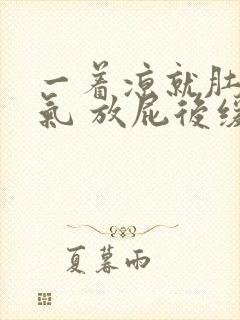 一着凉就肚
氣 放屁後缓
夏暮雨